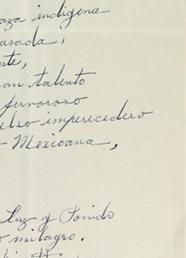 raza indigena
asada,
nte,
an talento
fervoroso
elso imperecedero
Mexicana,
Luz y Sonido
o milagro.